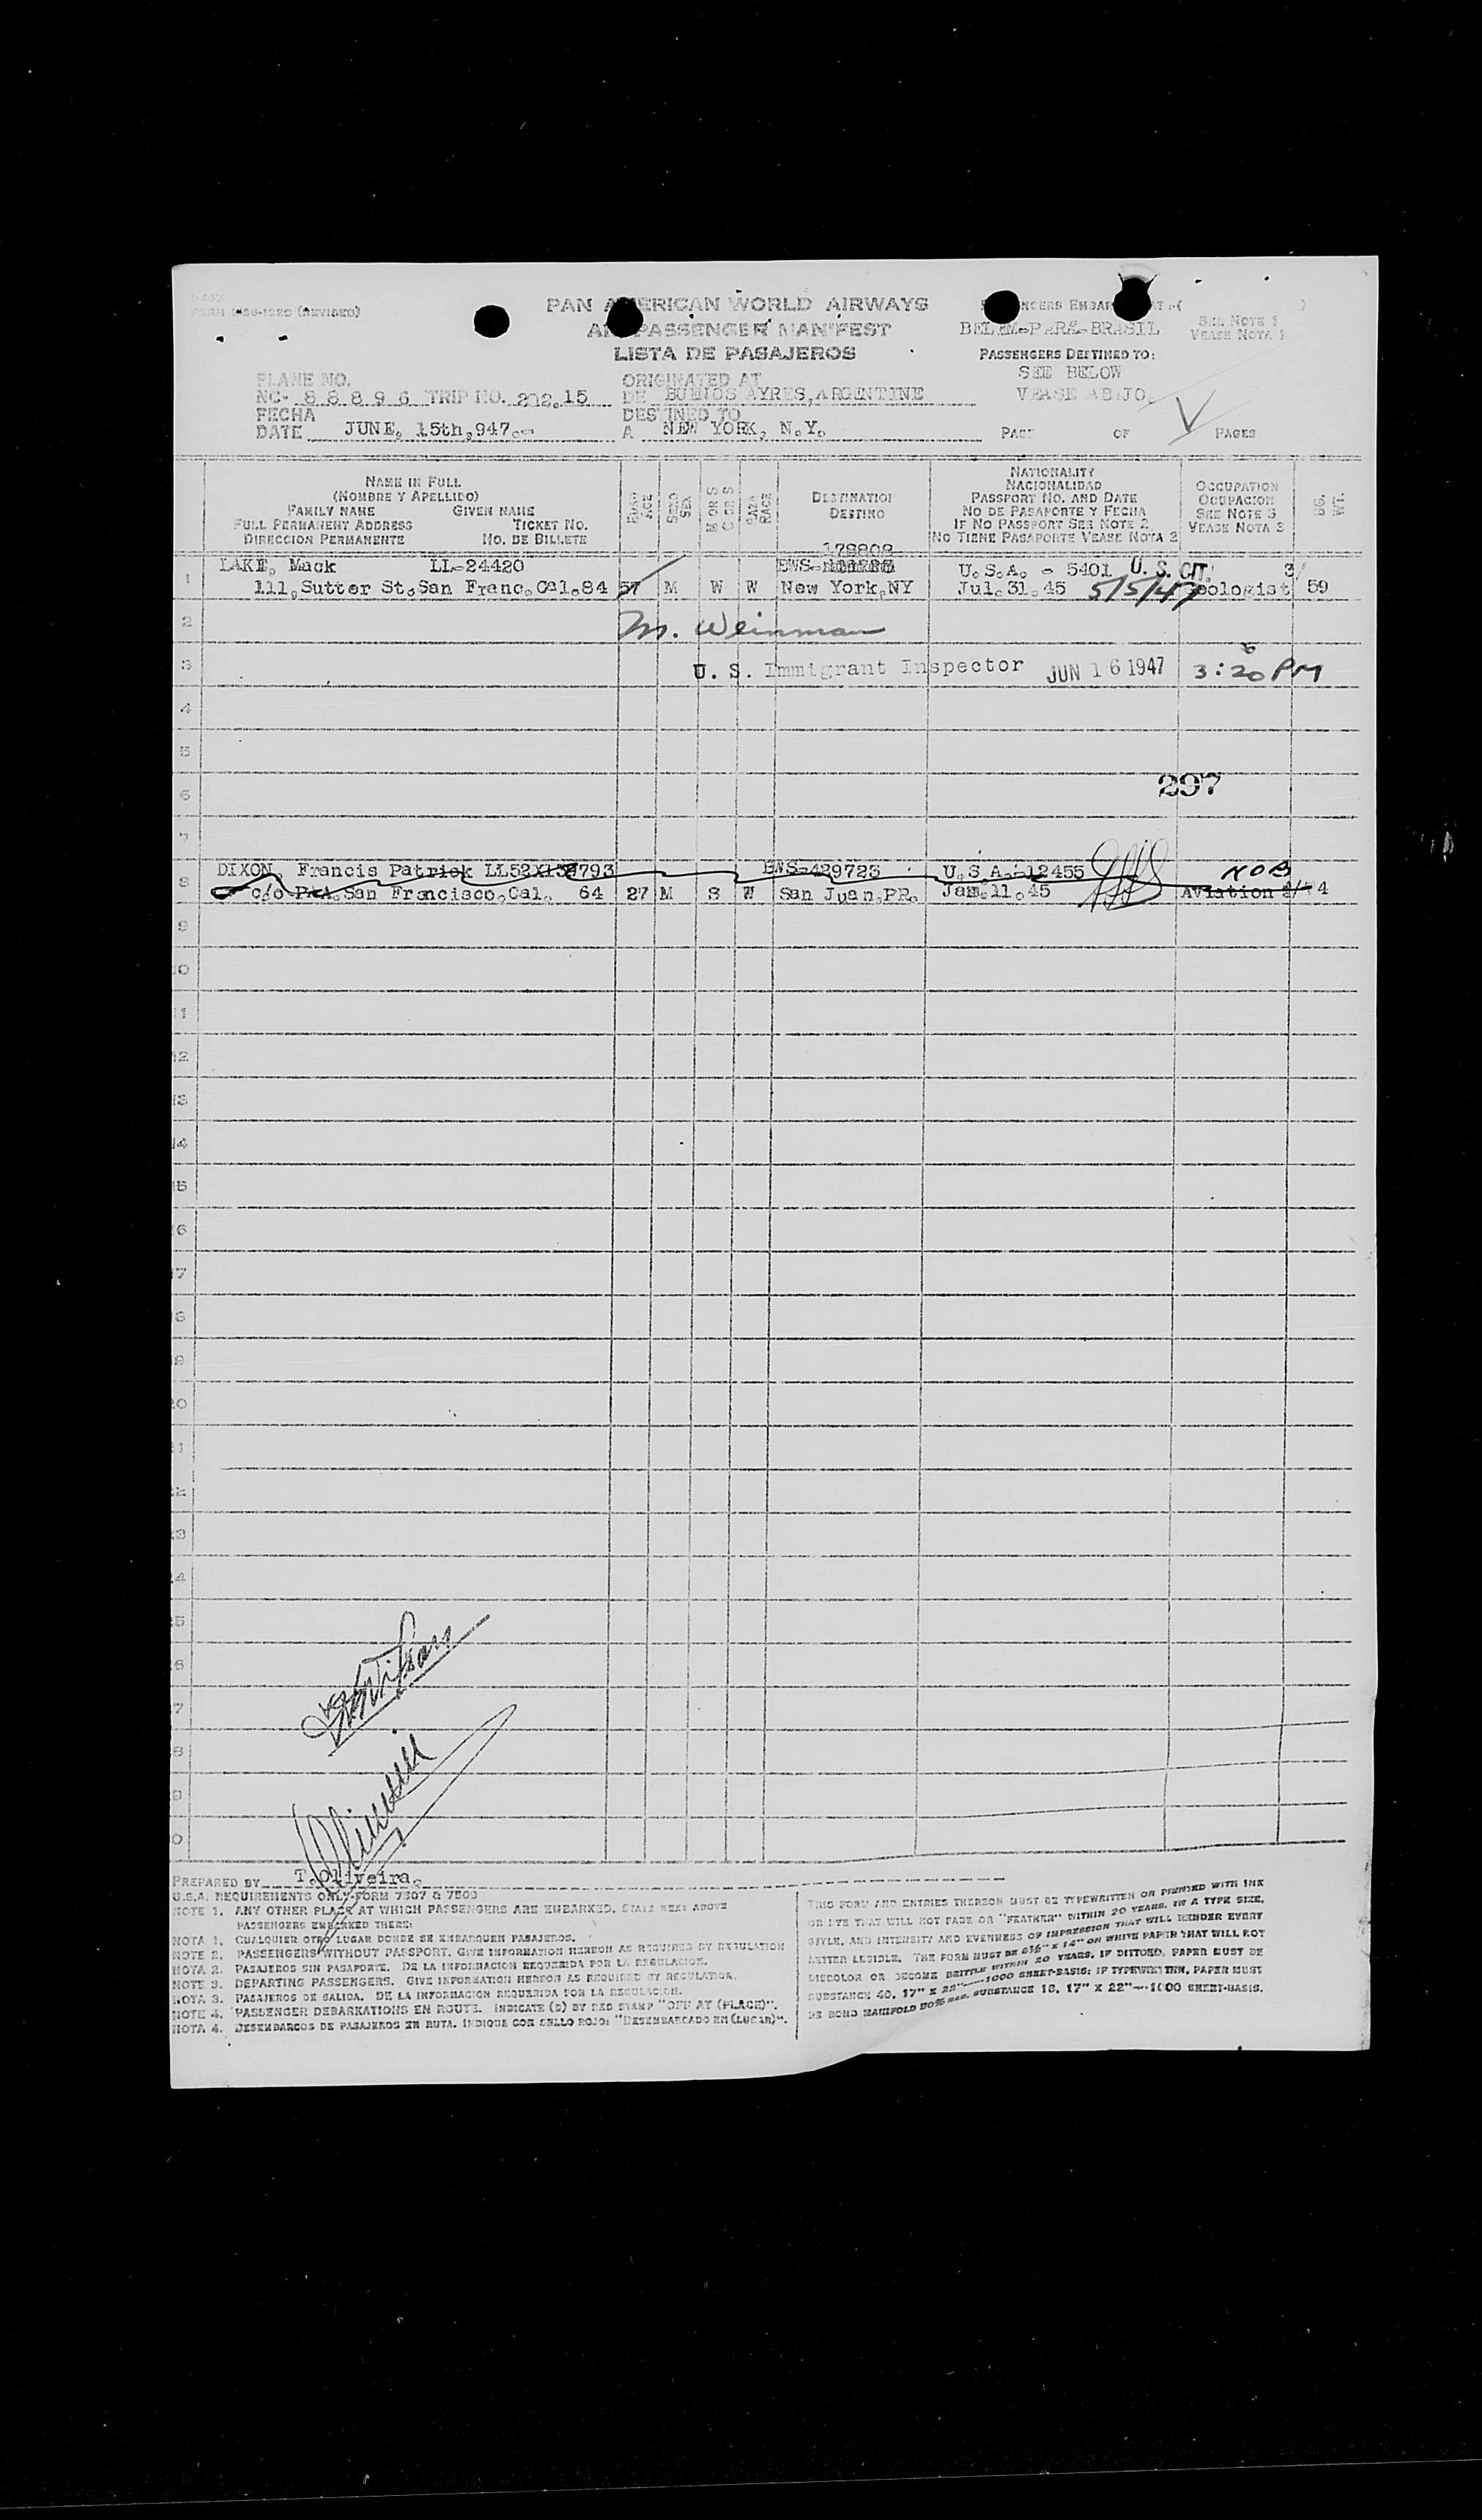 FORM (REVISED)
PAN AMERICAN WORLD AIRWAYS
PASSENGER MANIFEST
LISTA DE PASAJEROS
BELEM-PARA-BRASIL
SEE NOTE 1
VEASE NOTA 1
PASSENGERS DESTINED TO:
SEE BELOW
VEASE ABAJO.
PLANE NO.
NC- 8 8 8 9 6 TRIP NO. 202.15
ORIGINATED AT
DE BUENOS AYRES, ARGENTINE
FECHA
DATE JUNE, 15th, 947.-
DESTINED TO
A NEW YORK, N.Y.
PAGE OF PAGES
NAME IN FULL
(NOMBRE Y APELLIDO)
FAMILY NAME GIVEN NAME
FULL PERMANENT ADDRESS TICKET NO.
DIRECCION PERMANENTE NO. DE BILLETE
EDAD
AGE
SEXO
SEX
M OR S
C OR S
RAZA
RACE
DESTINATION
DESTINO
NATIONALITY
NACIONALIDAD
PASSPORT NO. AND DATE
NO DE PASAPORTE Y FECHA
IF NO PASSPORT SEE NOTE 2
NO TIENE PASAPORTE VEASE NOTA 2
OCCUPATION
OCUPACION
SEE NOTE 3
VEASE NOTA 3
KG.
WT.
178808
1 LAKE, Mack LL-24420 BWS- U.S.A. - 5401 U. S. CIT. 3/
111, Sutter St. San Franc. Cal. 84 57 M W W New York, NY Jul. 31. 45 5/5/47 Geologist 59
2 M. Weinman
3 U. S. Immigrant Inspector JUN 16 1947 3:20 PM
4
5
6 297
7
8 DIXON, Francis Patrick BWS-429723 U.S.A.-12455 NOB
c/o PAA. San Francisco, Cal. 64 27 M S W San Juan, PR. Jan. 11. 45 Aviation 4
9
10
11
12
13
14
15
16
17
18
19
20
21
22
23
24
25
26
27
28
29
30
PREPARED BY T. Oliveira.
U.S.A. REQUIREMENTS ONLY-FORM 7507 & 7509
NOTE 1. ANY OTHER PLACE AT WHICH PASSENGERS ARE EMBARKED. STATE NEXT ABOVE
PASSENGERS EMBARKED THERE:
NOTA 1. CUALQUIER OTRO LUGAR DONDE SE EMBARQUEN PASAJEROS.
NOTE 2. PASSENGERS WITHOUT PASSPORT. GIVE INFORMATION HEREON AS REQUIRED BY REGULATION
NOTA 2. PASAJEROS SIN PASAPORTE. DE LA INFORMACION REQUERIDA POR LA REGULACION.
NOTE 3. DEPARTING PASSENGERS. GIVE INFORMATION HEREON AS REQUIRED BY REGULATION.
NOTA 3. PASAJEROS DE SALIDA. DE LA INFORMACION REQUERIDA POR LA REGULACION.
NOTE 4. PASSENGER DEBARKATIONS EN ROUTE. INDICATE (D) BY RED STAMP "OFF AT (PLACE)".
NOTA 4. DESEMBARCOS DE PASAJEROS EN RUTA. INDIQUE CON SELLO ROJO: "DESEMBARCADO EN (LUGAR)".
THIS FORM AND ENTRIES THEREON MUST BE TYPEWRITTEN OR PRINTED WITH INK
OR DYE THAT WILL NOT FADE OR "FEATHER" WITHIN 20 YEARS, IN A TYPE SIZE,
STYLE, AND INTENSITY AND EVENNESS OF IMPRESSION THAT WILL RENDER EVERY
LETTER LEGIBLE. THE FORM MUST BE 8½" X 14" ON WHITE PAPER THAT WILL NOT
DISCOLOR OR BECOME BRITTLE WITHIN 20 YEARS. IF DITTOED, PAPER MUST BE
SUBSTANCE 40, 17" X 28"—1000 SHEET-BASIS; IF TYPEWRITTEN, PAPER MUST
BE BOND MANIFOLD 50% RAG, SUBSTANCE 16, 17" X 22"—1000 SHEET-BASIS.